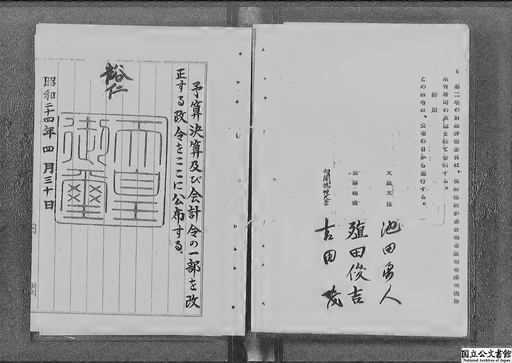 この政令は、公布の日から施行する。
大蔵大臣 池田勇人
法務総裁 殖田俊吉
内閣総理大臣 吉田茂
予算決算及び会計令の一部を改
正する政令をここに公布する。
裕仁
天皇
御璽
昭和二十四年四月三十日
国立公文書館
National Archives of Japan